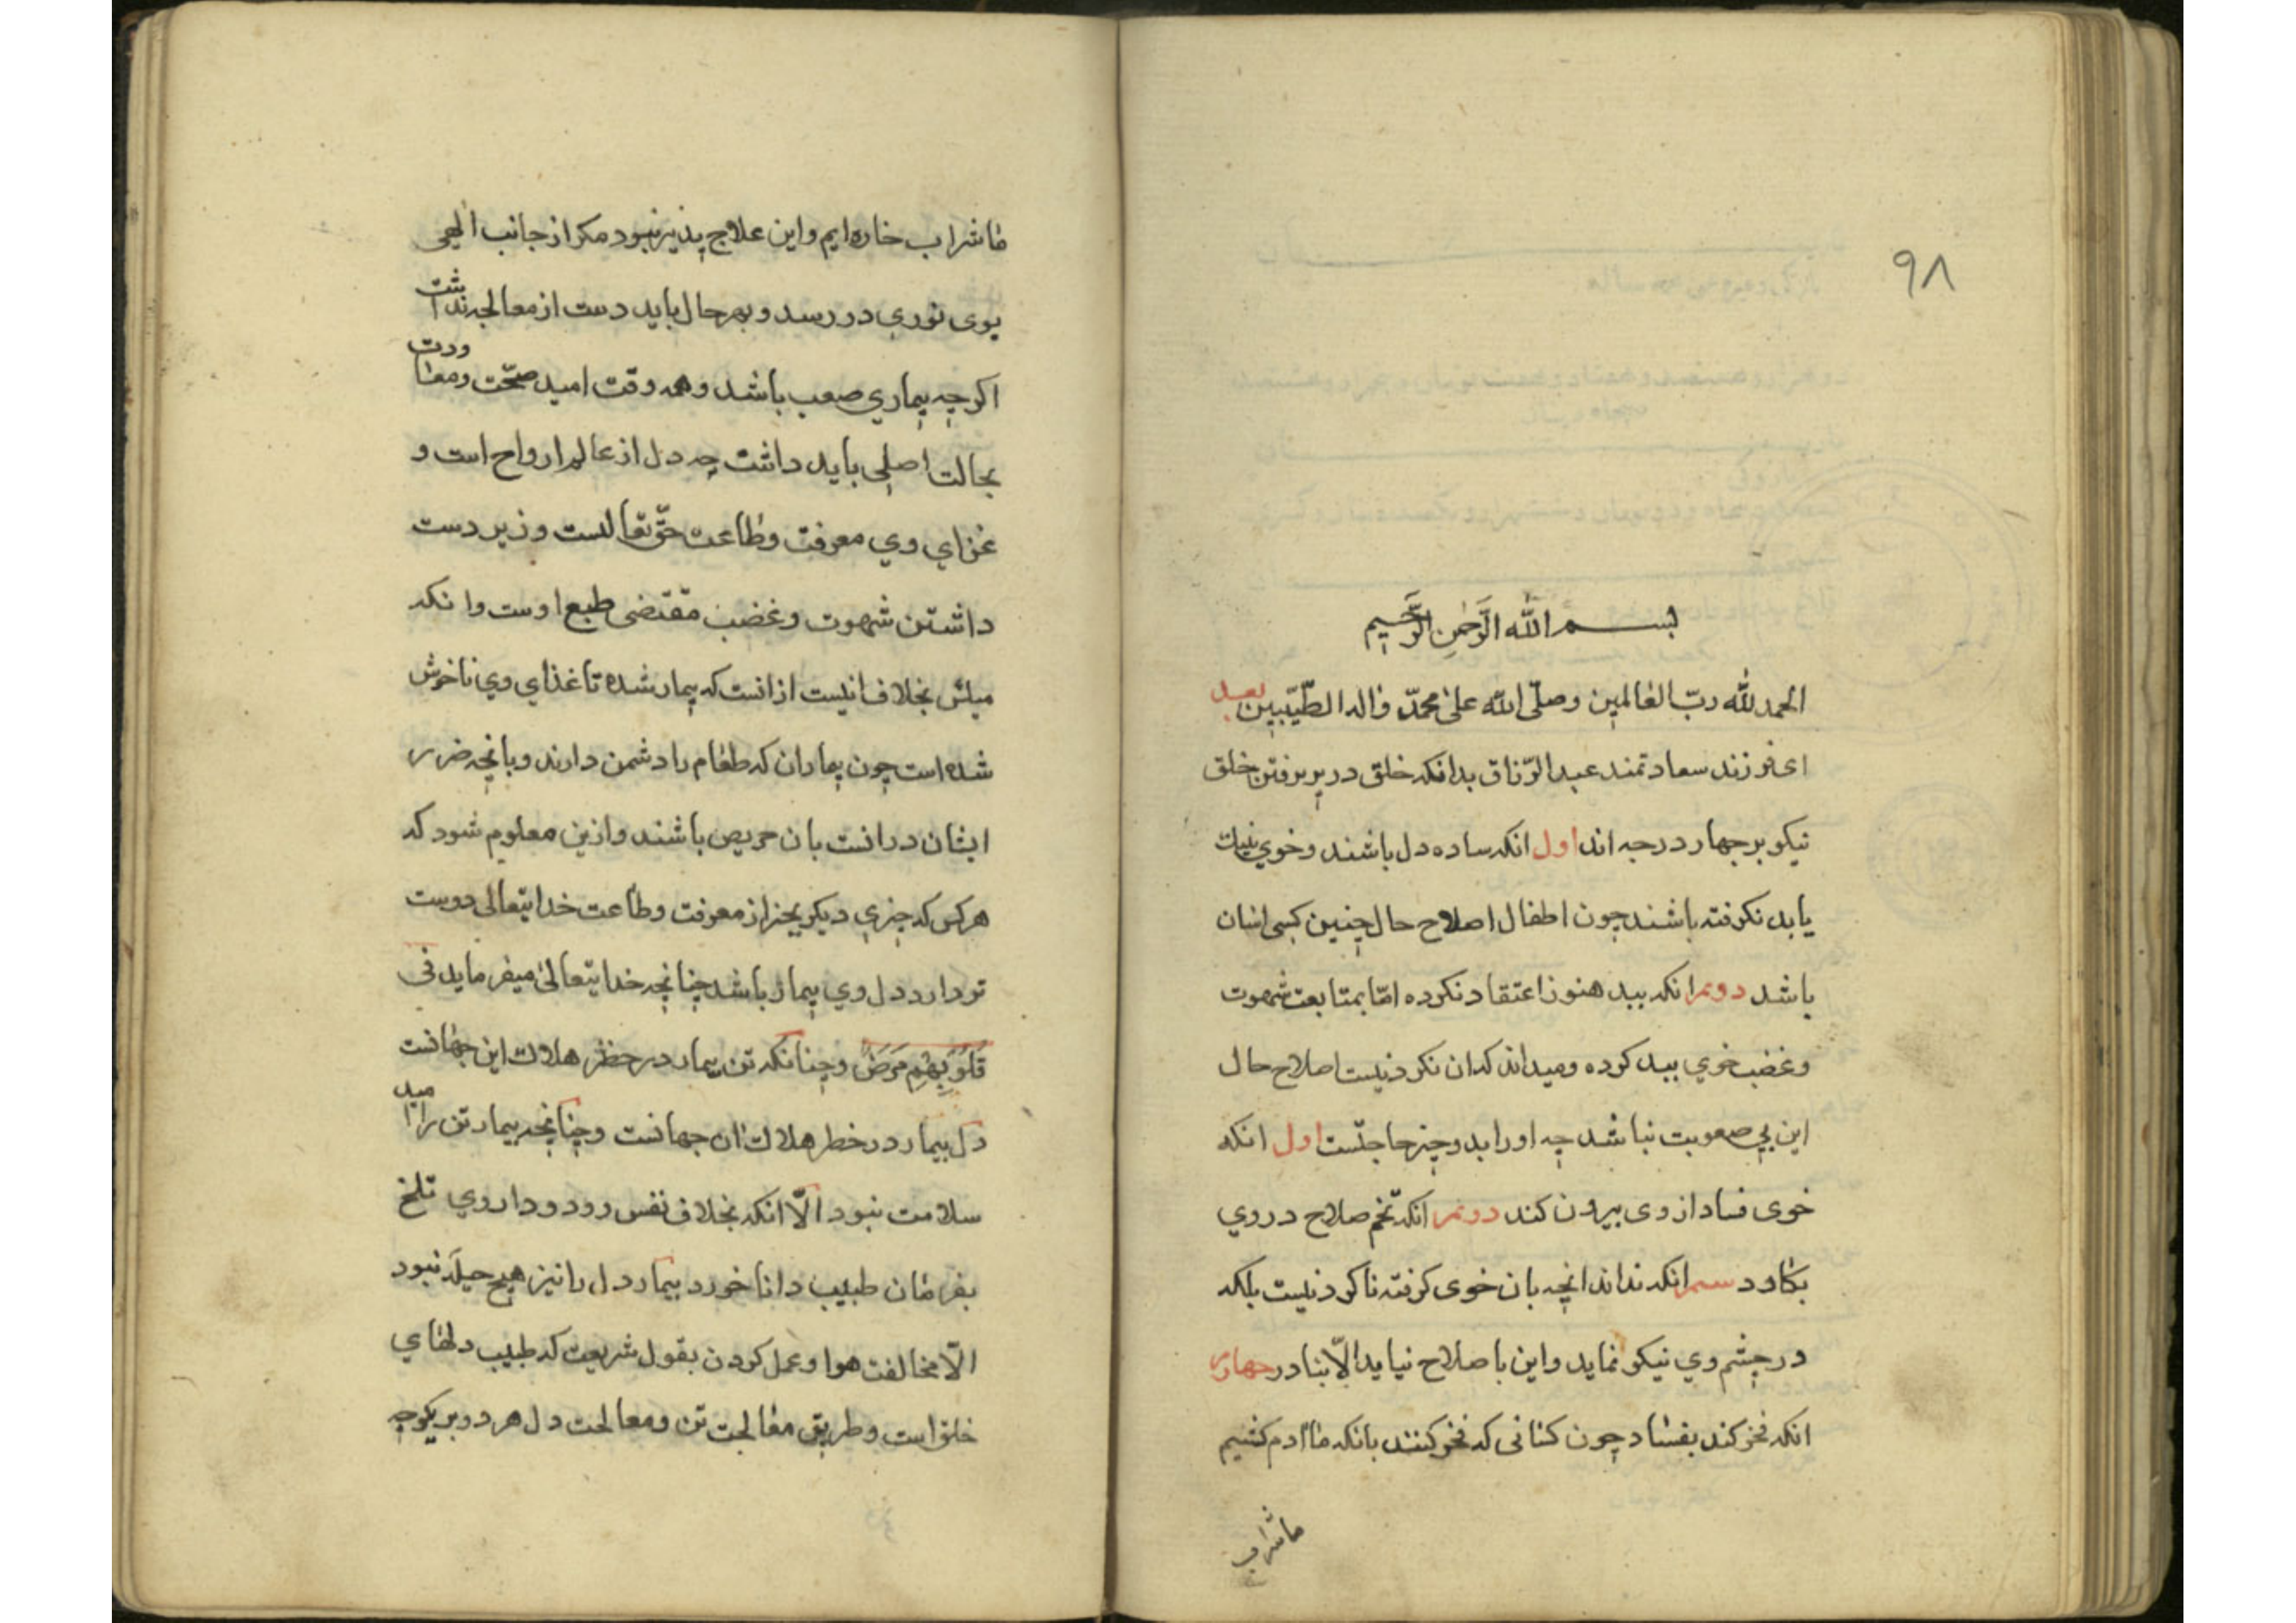 ۹۸
بسم الله الرَّحمنِ الرَّحیمِ
الحمد للّه ربّ العالمین وصلّی اللّه علی محمّد واله الطّیّبین بعد
ای فرزند سعادتمند عبد الرّزاق بدانکه خلق در پریرفتن خلق
نیکو بر چهار درجه اند اول انکه ساده دل باشند وخوی نیك
یا بد نکرفته باشند چون اطفال اصلاح حال چنین کسی اسان
باشد دوم انکه ببد هنوز اعتقاد نکرده امّا بمتابعت شهوت
وغضب خوی ببد کرده ومیداند که ان نکردنیست اصلاح حال
این بی صعوبت نباشد چه او را بدو چیز حاجتست اول انکه
خوی فساد از وی بیرون کند دوم انکه تخم صلاح در وی
بکارد سیم انکه نداند انچه بان خوی کرفته ناکردنیست بلکه
در چشم وی نیکو نماید واین باصلاح نیاید الّا بنادر چهارم
انکه فخر کند بفساد چون کسانی که فخر کنند بانکه ما ادم کشیم
ما شراب
ما شراب خاره ایم واین علاج پذیر نبود مکر از جانب الهی
بوی نوری در رسد وبهر حال باید دست از معالجه نداشت
اکرچه بیماری صعب باشد وهمه وقت امید صحّت ومعاودت
بحالت اصلی باید داشت چه دل از عالم ارواح است و
غذای وی معرفت وطاعت حقّ تعالیست وزیر دست
داشتن شهوت وغضب مقتضی طبع اوست وانکه
میلش بخلاف انیست ازانست که بیمار شده تا غذای وی ناخوش
شده است چون بیماران که طعام را دشمن دارند وبانچه ضرر
ایشان درانست بان حریص باشند وازین معلوم شود که
هر کس که چیزی دیکر بجز از معرفت وطاعت خدایتعالی دوست
تر دارد دل وی بیمار باشد چنانچه خدایتعالی میفرماید فی
قُلُوبِهِم مَرَضٌ وچنانکه تن بیمار در خطر هلاك این جهانست
دل بیمار در خطر هلاك ان جهانست وچنانچه بیمار تن را امید
سلامت نبود الّا انکه بخلاف نفس رود وداروی تلخ
بفرمان طبیب دانا خورد بیمار دل را نیز هیچ حیله نبود
الّا مخالفت هوا وعمل کردن بقول شریعت که طبیب دلهای
خلق است وطریق معالجت تن ومعالجت دل هر دو بریکوجه